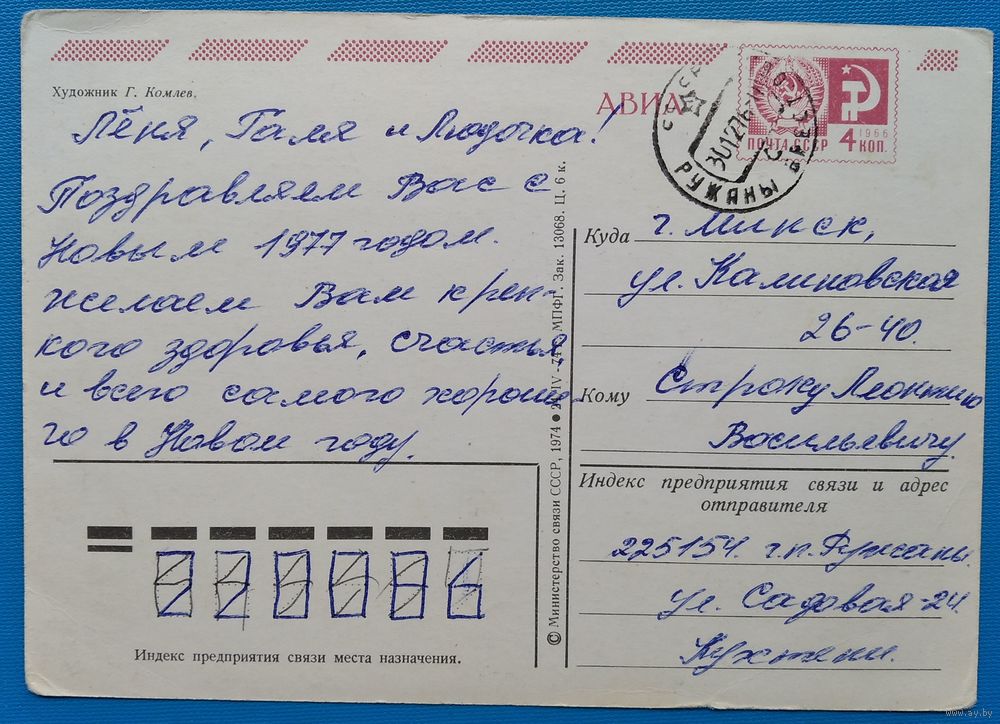 Художник Г. Комлев.
АВИА
ПОЧТА СССР
1966
4 КОП.
СССР
РУЖАНЫ
Лёня, Галя и Людочка!
Поздравляем Вас с
Новым 1977 годом.
желаем Вам креп-
кого здоровья, счастья,
и всего самого хороше-
го в Новом году.
Куда г. Минск,
ул. Калиновская
26-40.
Кому Строку Леонтию
Васильевичу.
Индекс предприятия связи и адрес
отправителя
225154 г.п. Ружаны.
ул. Садовая-24.
Индекс предприятия связи места назначения.
© Министерство связи СССР, 1974 МПФГ. Зак. 13068. Ц. 6 к.
www.ay.by